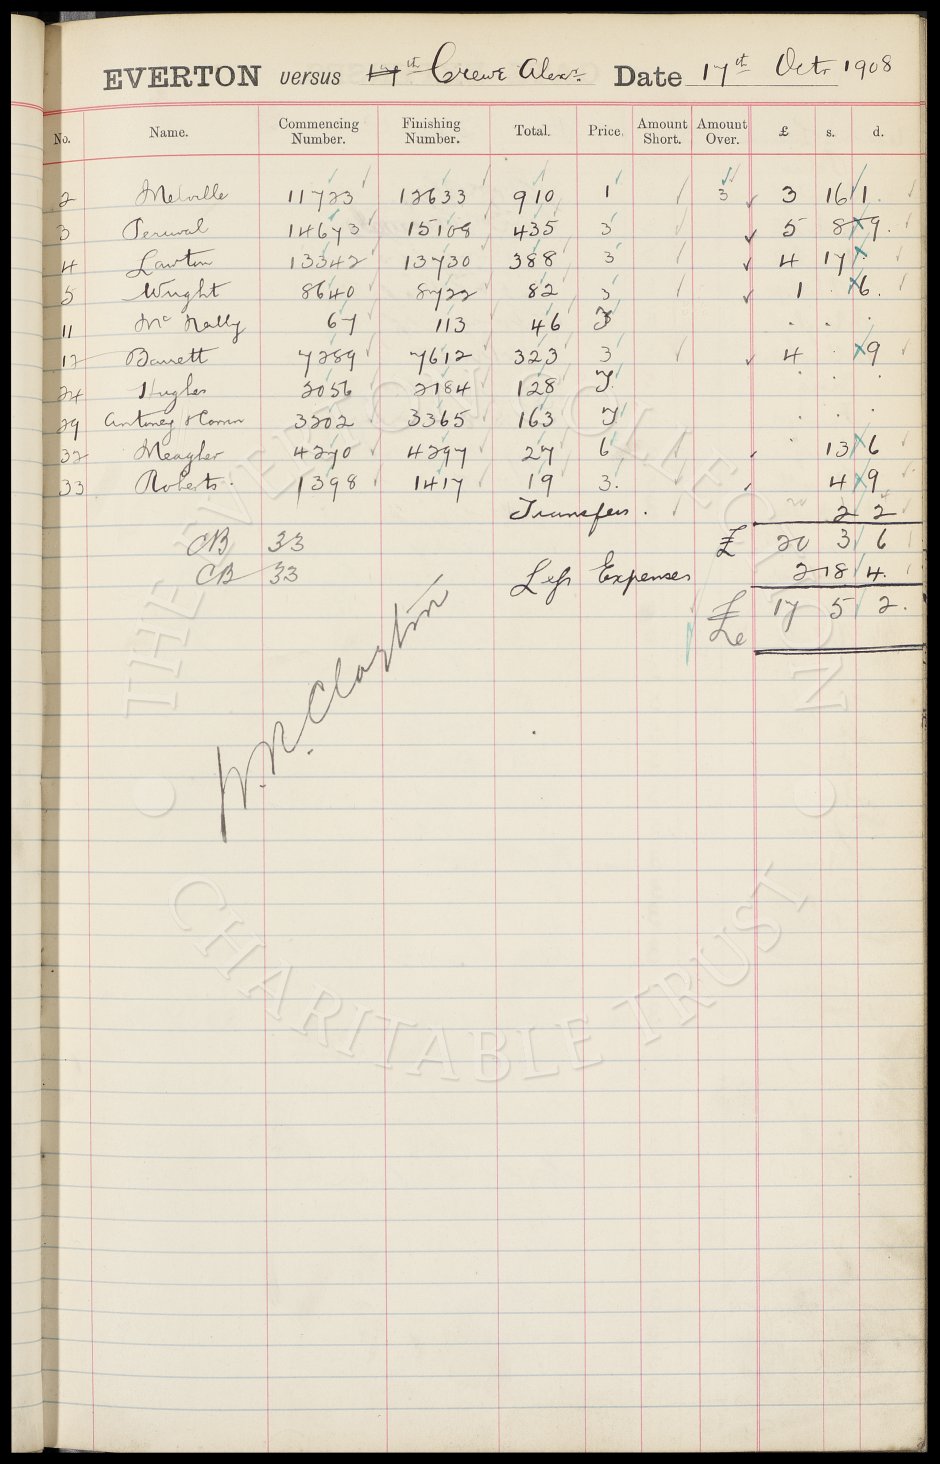 EVERTON versus 17th Crewe Alexr. Date 17th Octr 1908
No. Name. Commencing Number. Finishing Number. Total. Price. Amount Short. Amount Over. £ s. d.
2 Melville 11723 12633 910 1 3 3 16 1
3 Percival 14673 15108 435 3 5 8 9
4 Lawton 13342 13730 388 3 4 17
5 Wright 8640 8722 82 3 1 . 6
11 McNally 67 113 46 . . .
12 Barrett 7289 7612 323 3 4 . 9
24 Hughes 2056 2184 128 . . .
29 3202 3365 163 . . .
32 Meagher 4270 4297 27 6 . 13 6
33 Roberts. 1398 1417 19 3. 4 9
Transfers. 2 2
CB 33 £ 20 3 6
CB 33 Less Expenses 2 18 4.
£ 17 5 2.
W. R. Clayton
THE EVERTON COLLECTION
CHARITABLE TRUST